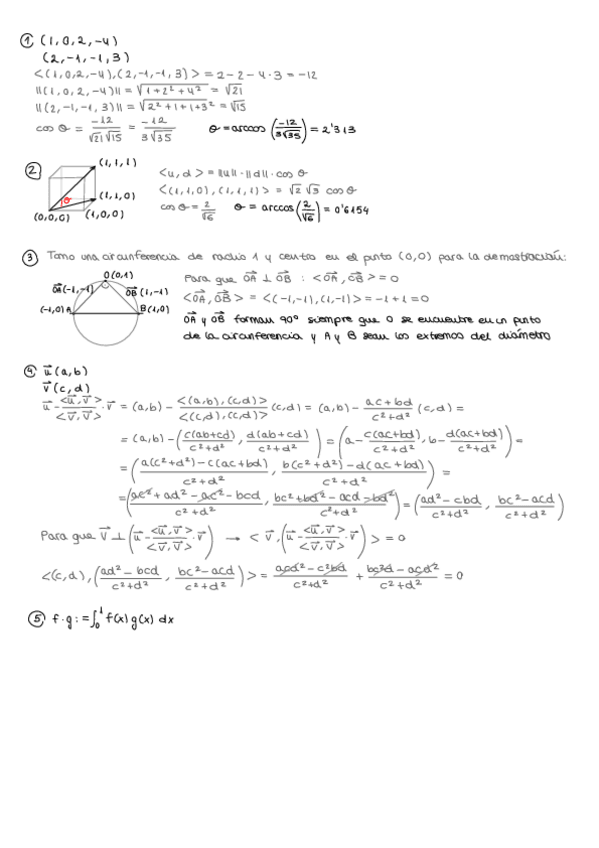 ① (1,0,2,-4)
(2,-1,-1,3)
<(1,0,2,-4),(2,-1,-1,3)> = 2-2-4·3 = -12
||(1,0,2,-4)|| = √(1+2²+4²) = √21
||(2,-1,-1,3)|| = √(2²+1+1+3²) = √15
cos θ = -12/(√21√15) = -12/(3√35) θ = arccos(-12/(3√35)) = 2'313
② (1,1,1)
(1,1,0)
θ
(0,0,0) (1,0,0)
<u,d> = ||u||·||d||·cos θ
<(1,1,0),(1,1,1)> = √2 √3 cos θ
cos θ = 2/√6 θ = arccos(2/√6) = 0'6154
③ Tomo una circunferencia de radio 1 y centro en el punto (0,0) para la demostración:
O(0,1)
OA(-1,-1) OB(1,-1)
(-1,0)A B(1,0)
Para que OA ⊥ OB : <OA,OB> = 0
<OA,OB> = <(-1,-1),(1,-1)> = -1+1 = 0
OA y OB forman 90° siempre que O se encuentre en un punto
de la circunferencia y A y B sean los extremos del diámetro
④ u(a,b)
v(c,d)
u - <u,v>/<v,v> · v = (a,b) - <(a,b),(c,d)>/<(c,d),(c,d)> (c,d) = (a,b) - (ac+bd)/(c²+d²) (c,d) =
= (a,b) - (c(ab+cd)/(c²+d²), d(ab+cd)/(c²+d²)) = (a - c(ac+bd)/(c²+d²), b - d(ac+bd)/(c²+d²)) =
= ((a(c²+d²)-c(ac+bd))/(c²+d²), (b(c²+d²)-d(ac+bd))/(c²+d²)) =
= ((ac²+ad²-ac²-bcd)/(c²+d²), (bc²+bd²-acd-bd²)/(c²+d²)) = ((ad²-cbd)/(c²+d²), (bc²-acd)/(c²+d²))
Para que v ⊥ (u - <u,v>/<v,v> · v) → <v,(u - <u,v>/<v,v> · v)> = 0
<(c,d),((ad²-bcd)/(c²+d²), (bc²-acd)/(c²+d²))> = (acd²-c²bd)/(c²+d²) + (bc²d-acd²)/(c²+d²) = 0
⑤ f·g := ∫₀¹ f(x)g(x) dx